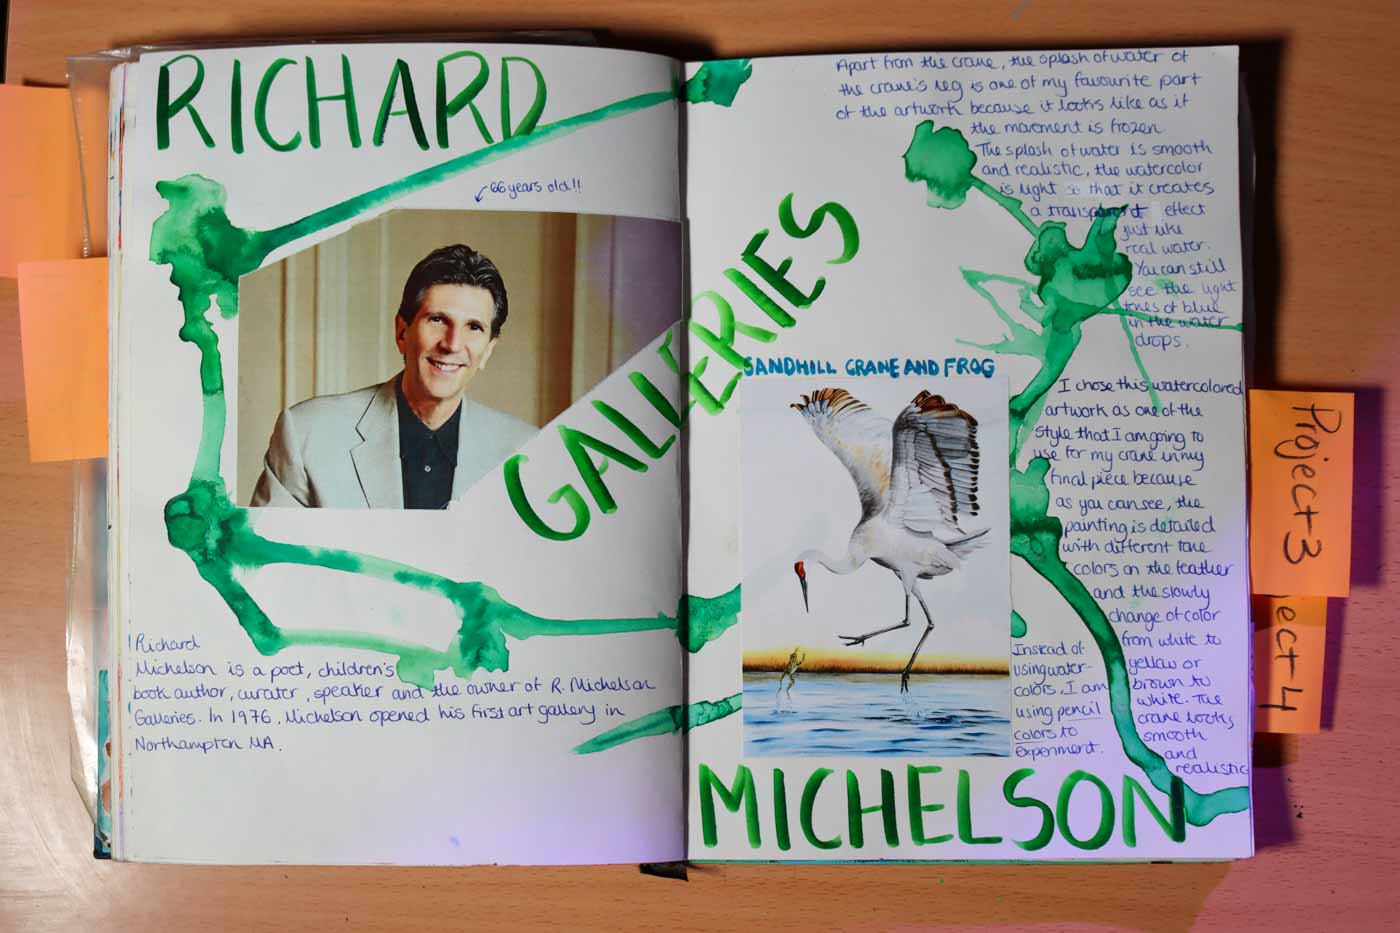 RICHARD
66 years old!!
GALLERIES
Richard
Michelson is a poet, children's
book author, curater, speaker and the owner of R. Michelson
Galleries. In 1976, Michelson opened his first art gallery in
Northampton MA.
Apart from the crane, the splash of water of
the crane's leg is one of my favourite part
of the artwork because it looks like as if
the movment is frozen
The splash of water is smooth
and realistic, the watercolor
is light so that it creates
a transparent effect
just like
real water.
You can still
see the light
tones of blue
in the water
drops.
SANDHILL CRANE AND FROG
I chose this watercolored
artwork as one of the
style that I am going to
use for my crane in my
final piece because
as you can see, the
painting is detailed
with different tone
colors on the feather
and the slowly
change of color
from white to
yellow or
brown to
white. The
crane looks
smooth
and
realistic
Instead of
using water-
colors, I am
using pencil
colors to
experiment.
MICHELSON
Project 3
ject 4